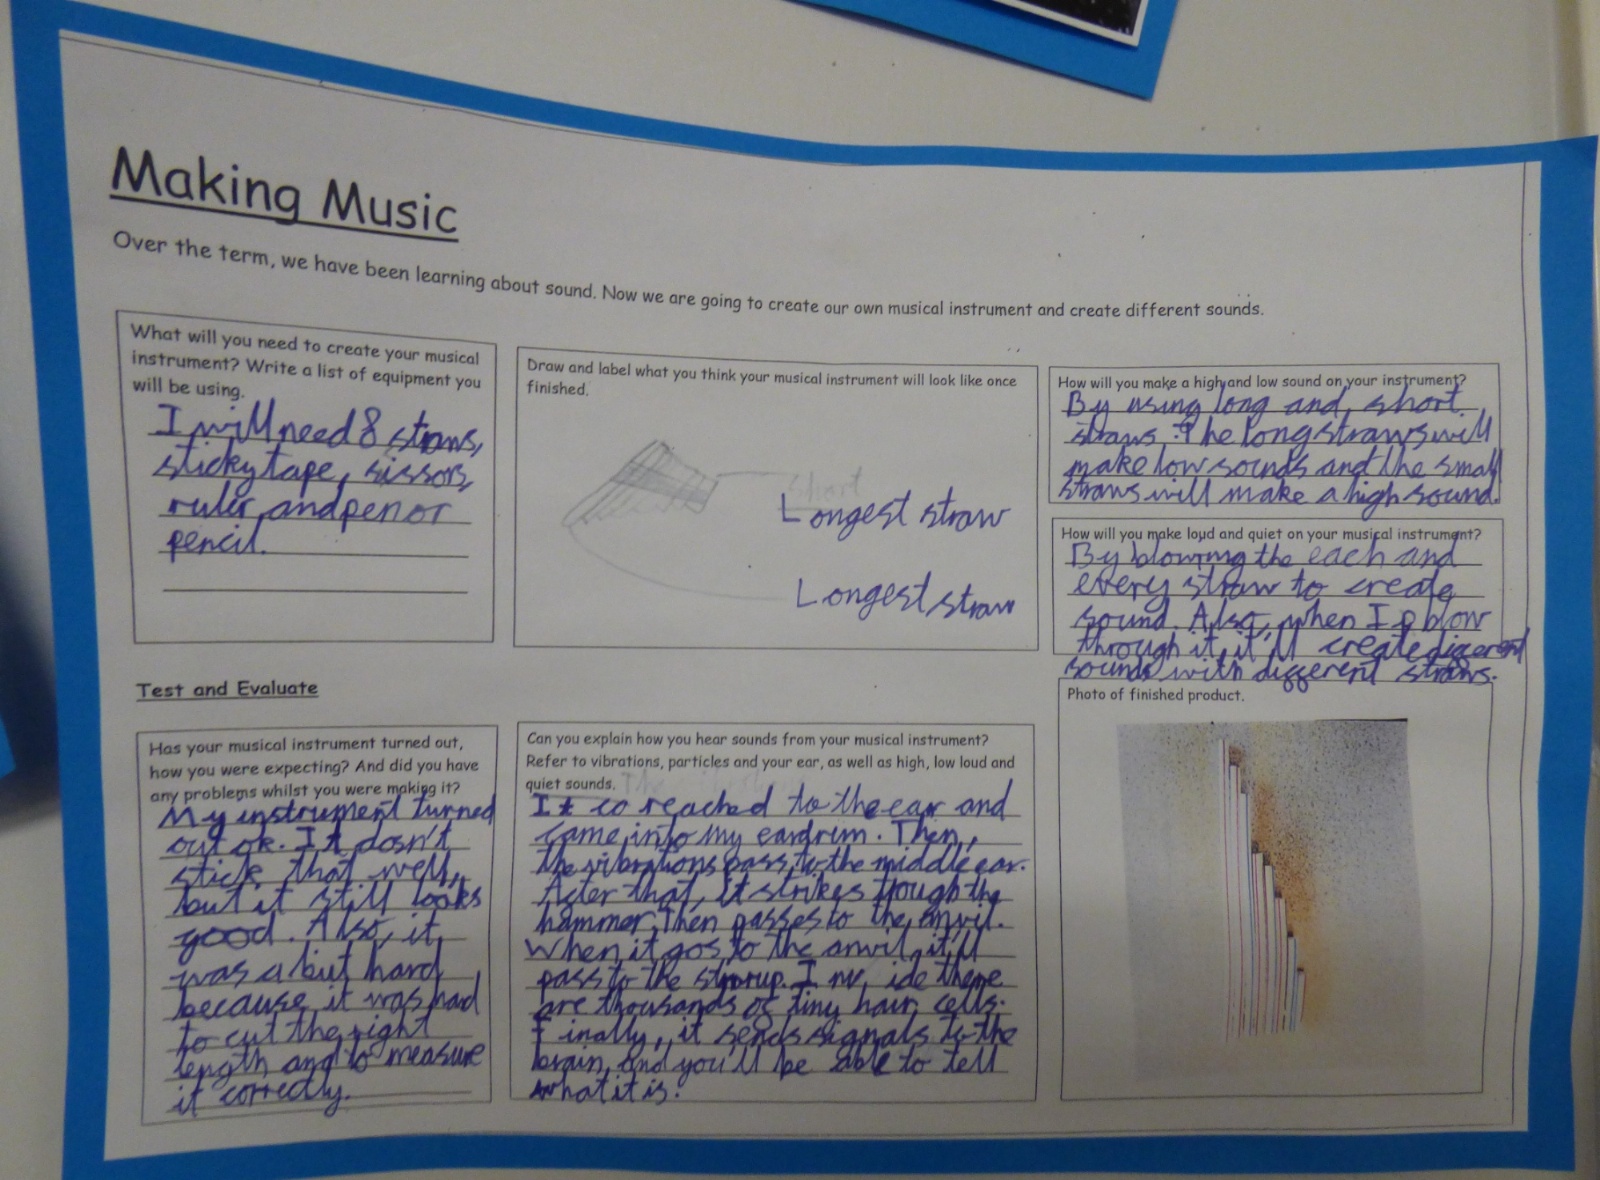 Making Music
Over the term, we have been learning about sound. Now we are going to create our own musical instrument and create different sounds.
What will you need to create your musical
instrument? Write a list of equipment you
will be using.
I will need 8 straws,
sticky tape, sissors,
ruler, and pen or
pencil.
Draw and label what you think your musical instrument will look like once
finished.
short
Longest straw
Longest straw
How will you make a high and low sound on your instrument?
By using long and short
straws. The long straws will
make low sounds and the small
straws will make a high sound.
How will you make loud and quiet on your musical instrument?
By blowing the each and
every straw to create
sound. Also, when I blow
through it, it'll create digerent
sounds with different straws.
Test and Evaluate
Has your musical instrument turned out,
how you were expecting? And did you have
any problems whilst you were making it?
My instrument turned
out ok. It dosn't
stick that well,
but it still looks
good. Also, it
was a but hard
because it was hard
to cut the right
length and to measure
it correctly.
Can you explain how you hear sounds from your musical instrument?
Refer to vibrations, particles and your ear, as well as high, low loud and
quiet sounds.
It so reached to the ear and
came into my eardrum. Then,
the vibrations pass to the middle ear.
After that, it strikes though the
hammer. Then passes to the anvil.
When it gos to the anvil, it'll
pass to the I there
are thousands of tiny hair cells.
Finally, it sends signals to the
brain, and you'll be able to tell
what it is.
Photo of finished product.